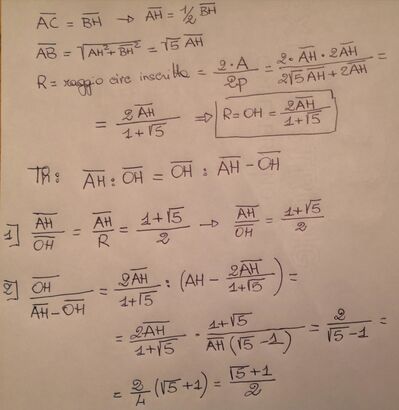 AC = BH → AH = 1/2 BH
AB = √AH²+BH² = √5 AH
R = raggio circ inscritta = 2·A / 2p = 2·AH·2AH / 2√5AH+2AH =
= 2AH / 1+√5 ⇒ R=OH = 2AH / 1+√5
Th: AH : OH = OH : AH-OH
1] AH / OH = AH / R = 1+√5 / 2 → AH / OH = 1+√5 / 2
2] OH / AH-OH = 2AH / 1+√5 : (AH - 2AH / 1+√5) =
= 2AH / 1+√5 · 1+√5 / AH(√5-1) = 2 / √5-1 =
= 2/4 (√5+1) = √5+1 / 2